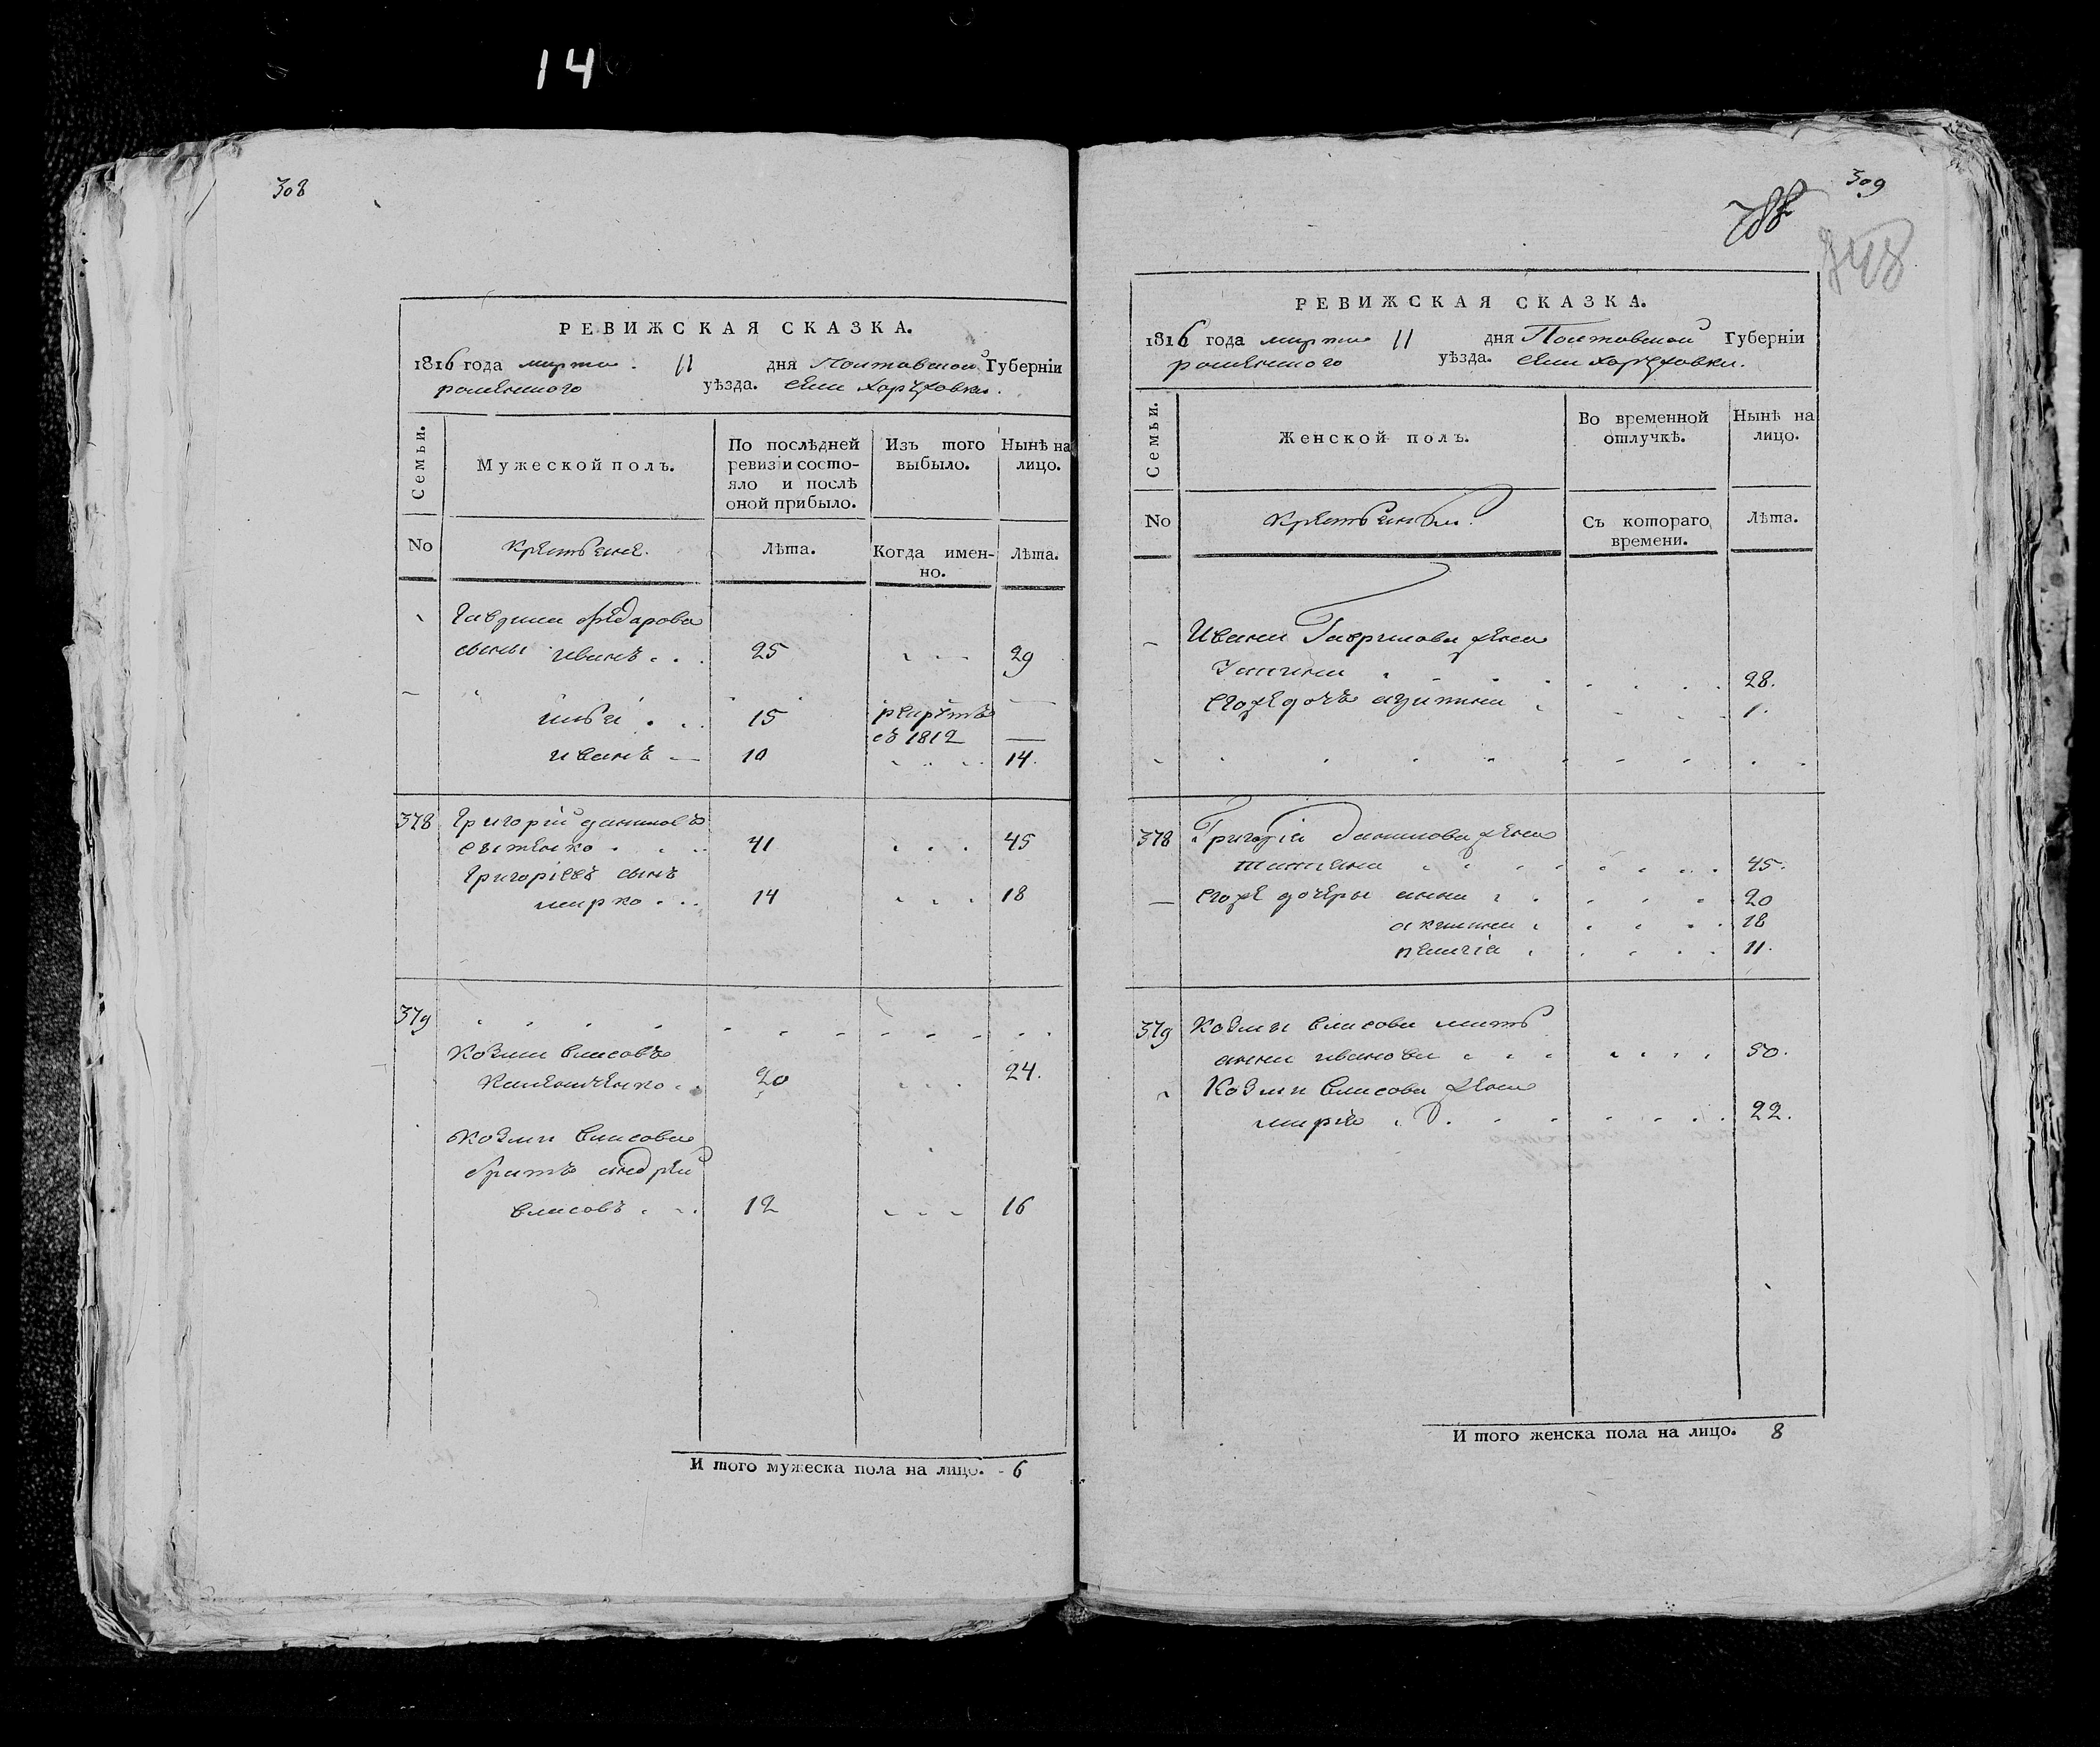 14
308
РЕВИЖСКАЯ СКАЗКА.
1816 года марта 11 дня Полтавской Губерніи
роменского уѣзда. села
Семьи.
Мужеской полъ.
По послѣдней ревизіи состояло и послѣ оной прибыло.
Изъ того выбыло.
Нынѣ на лицо.
No
Крестьяне.
Лѣта.
Когда именно.
Лѣта.
Гаврила Федорова
сыны иванъ 25 29
илья 15 рекрутъ
въ 1812
иванъ 10 14
378 Григорій даниловъ
41 45
Григоріевъ сынъ
марко 14 18
379
Козма власовъ
20 24.
Козмы власова
братъ андрей
власовъ 12 16
И того мужеска пола на лицо. 6
309
РЕВИЖСКАЯ СКАЗКА.
1816 года марта 11 дня Полтавской Губерніи
роменского уѣзда. села
Семьи.
Женской полъ.
Во временной отлучкѣ.
Нынѣ на лицо.
No
Съ котораго времени.
Лѣта.
Ивана Гаврилова жена
28.
егоже дочь 1.
378 Григорія Данилова жена
татіяна 45.
егоже дочеры анна 20
акилина 18
пелагія 11.
379 Козмы власова мать
анна иванова 50.
Козмы власова жена
марія 22.
И того женска пола на лицо. 8